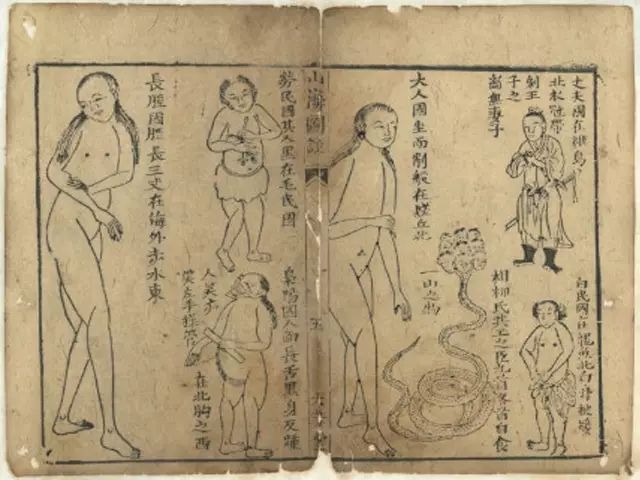 丈夫國在維鳥
北衣冠帶
劍王
子之
無妻子
白民國在龍魚北白身被髮
相柳氏共工之臣九首各首自食
一山之物
大人國坐而削船在丘北
山海圖
五
勞民國其人黑在毛民國
梟陽國人面長舌黑身反踵
人笑亦
笑左手操管
在北朐之西
長國脛長三丈在海外赤水東